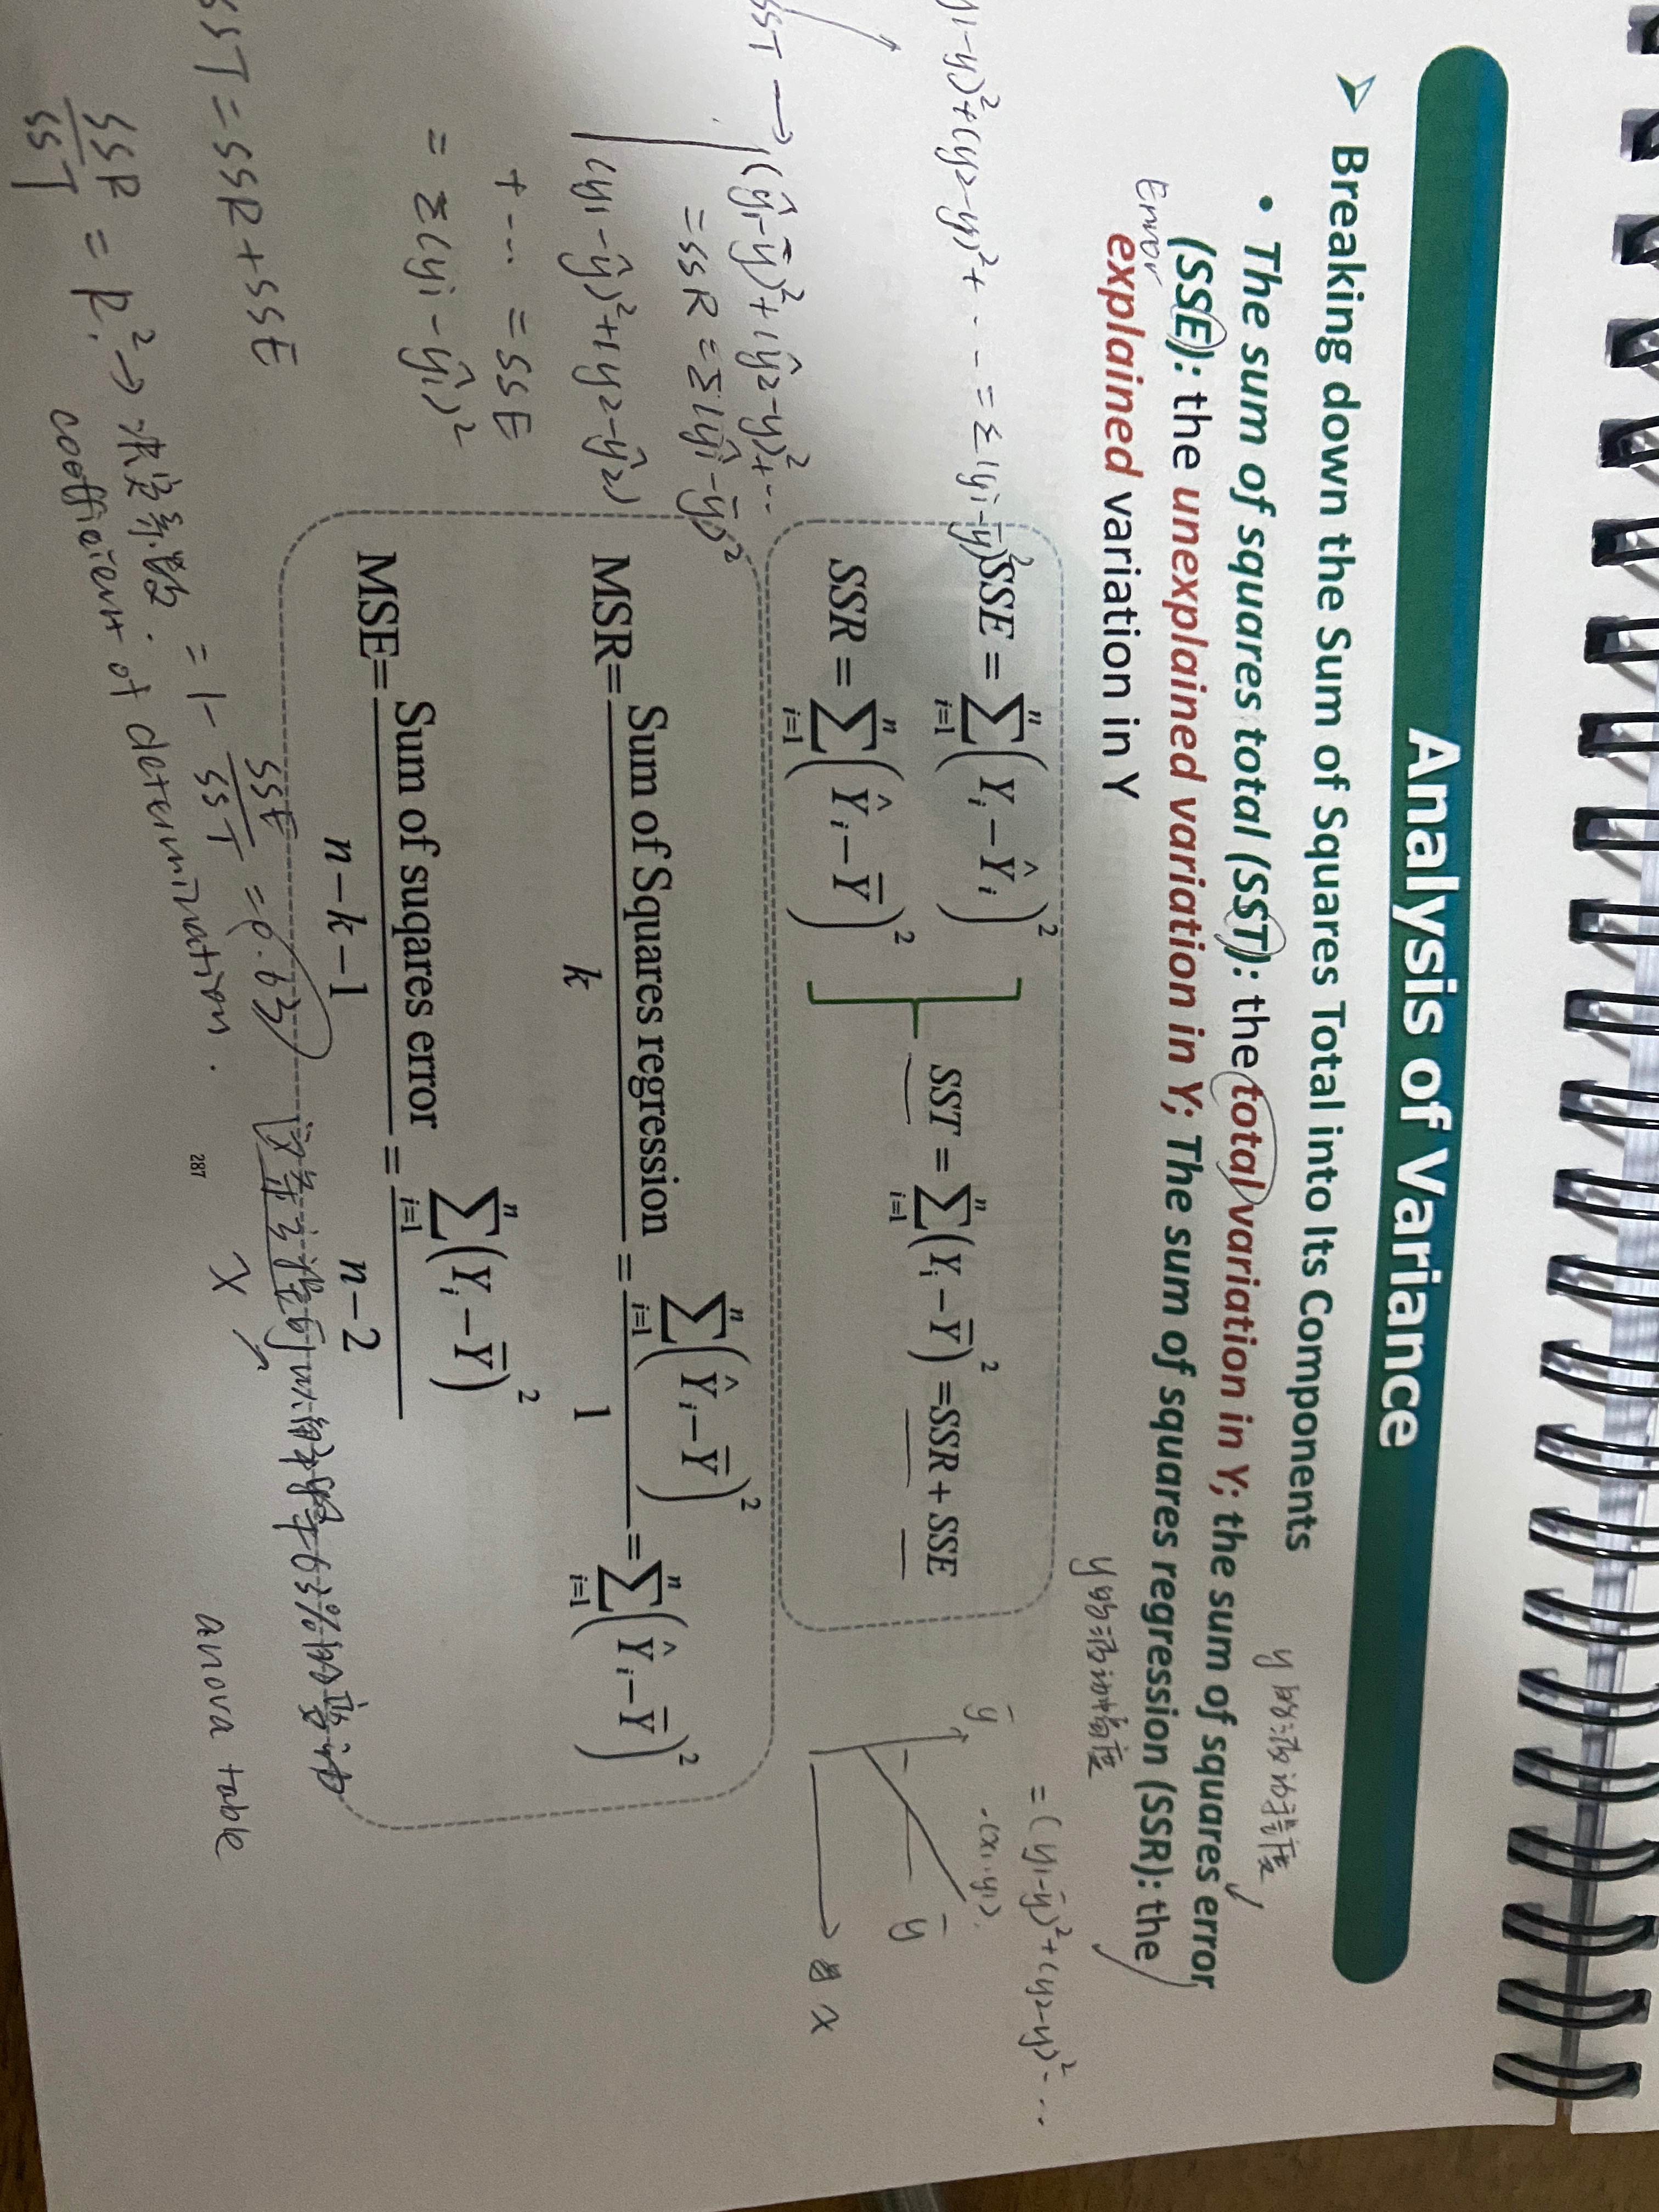 Analysis of Variance
➢ Breaking down the Sum of Squares Total into Its Components
y的波动幅度
• The sum of squares total (SST): the total variation in Y; the sum of squares error
(SSE): the unexplained variation in Y; The sum of squares regression (SSR): the
Error
explained variation in Y
y的波动幅度
= (y₁-ȳ)²+(y₂-ȳ)² ...
-ȳ)²+(y₂-ȳ)²+ ... = Σ(yi-ȳ)²
SSE = \sum_{i=1}^{n} (Y_i - Ŷ_i)²
SSR = \sum_{i=1}^{n} (Ŷ_i - Ȳ)²
SST = \sum_{i=1}^{n} (Y_i - Ȳ)² =SSR + SSE
ȳ
(x₁,y₁)
ȳ
x
SST → (ŷ₁-ȳ)²+(ŷ₂-ȳ)²+...
=SSR = Σ(ŷi-ȳ)²
(y₁-ŷ₁)²+(y₂-ŷ₂)
+ ... = SSE
= Σ(yi-ŷi)²
MSR= Sum of Squares regression / k = \sum_{i=1}^{n} (Ŷ_i - Ȳ)² / 1 = \sum_{i=1}^{n} (Ŷ_i - Ȳ)²
MSE= Sum of suqares error / n-k-1 = \sum_{i=1}^{n} (Y_i - Ȳ)² / n-2
SST = SSR+SSE
SSR/SST = R² → 决定系数.
= 1 - SSE/SST = 0.63
coefficient of determination.
X
287
anova table